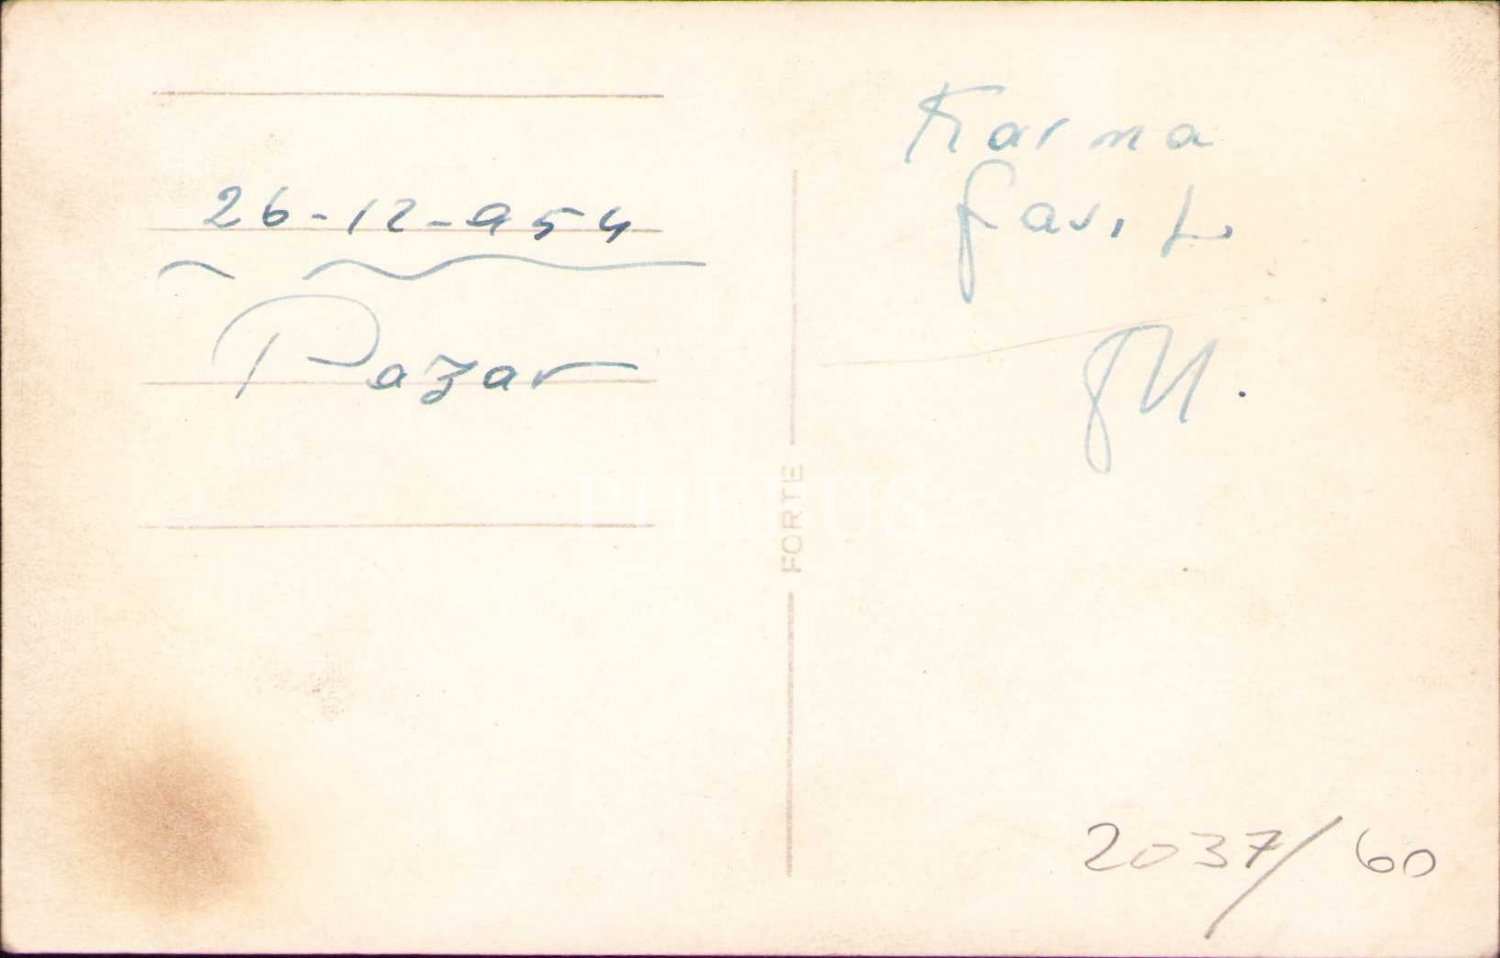 26-12-954
Pazar
Karma
FORTE
PHEBUS
2037/60